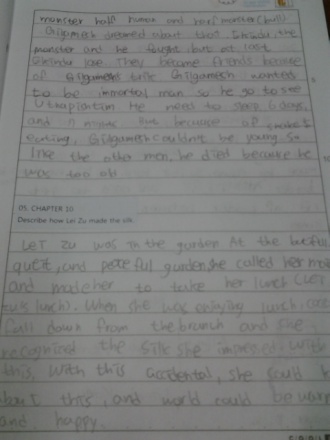 monster half human and half monster (bull)
Gilgamesh dreamed about that Enkidu, the
monster and he fought, but at last
Enkidu lose. They become friends because
of Gilgamesh wanted
to be immortal man so he go to see
Utnapishtim He need to sleep 6 days
and 7 nights But because of snake's
eating, Gilgamesh couldn't be young So
like the other men, he died because he
was too old
05. CHAPTER 10
Describe how Lei Zu made the silk.
Lei Zu was in the garden At the
quiet, and garden, she called her
and made her to take her lunch (Lei
Zu's lunch). When she was enjoying lunch,
fall down from the branch and she
recognized the silk she impressed with
this. With this accidental, she could
this, and world could be warm
and happy.